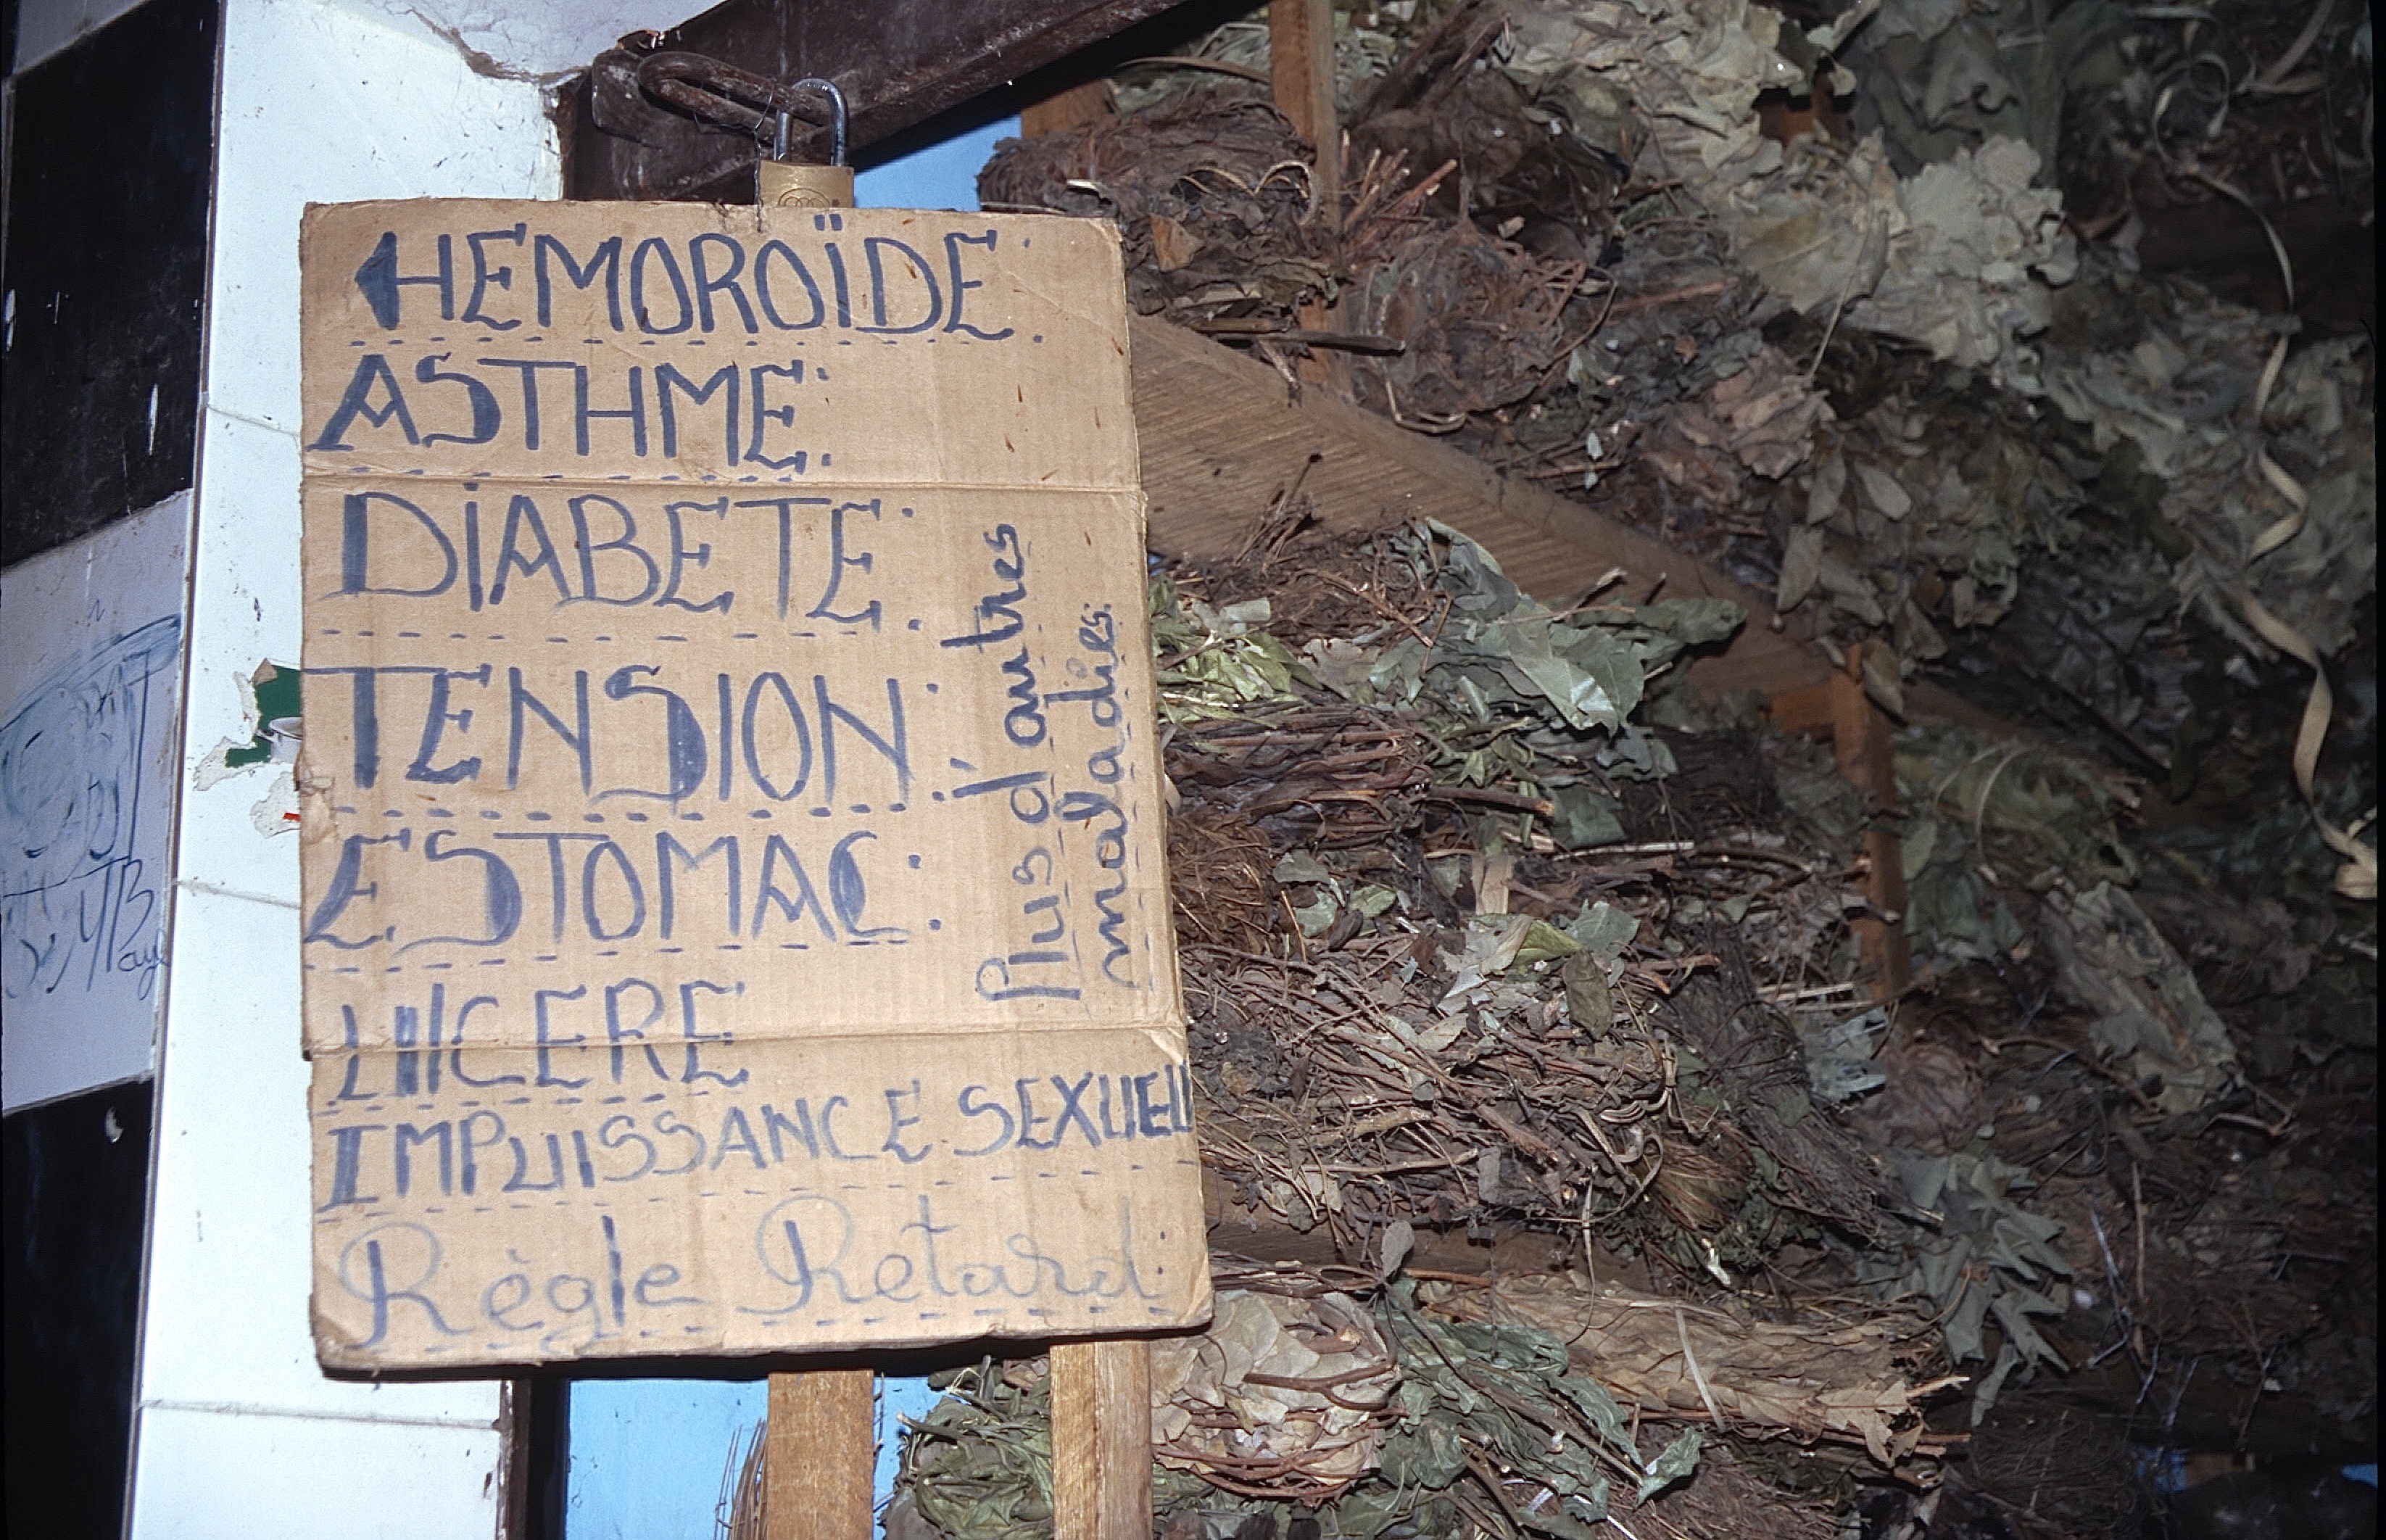 HEMOROÏDE:
ASTHME:
DiABETE:
TENSION:
ESTOMAC:
UlCERE
IMPUISSANCE SEXUEL
Règle Retard:
Plus d'autres
maladies: